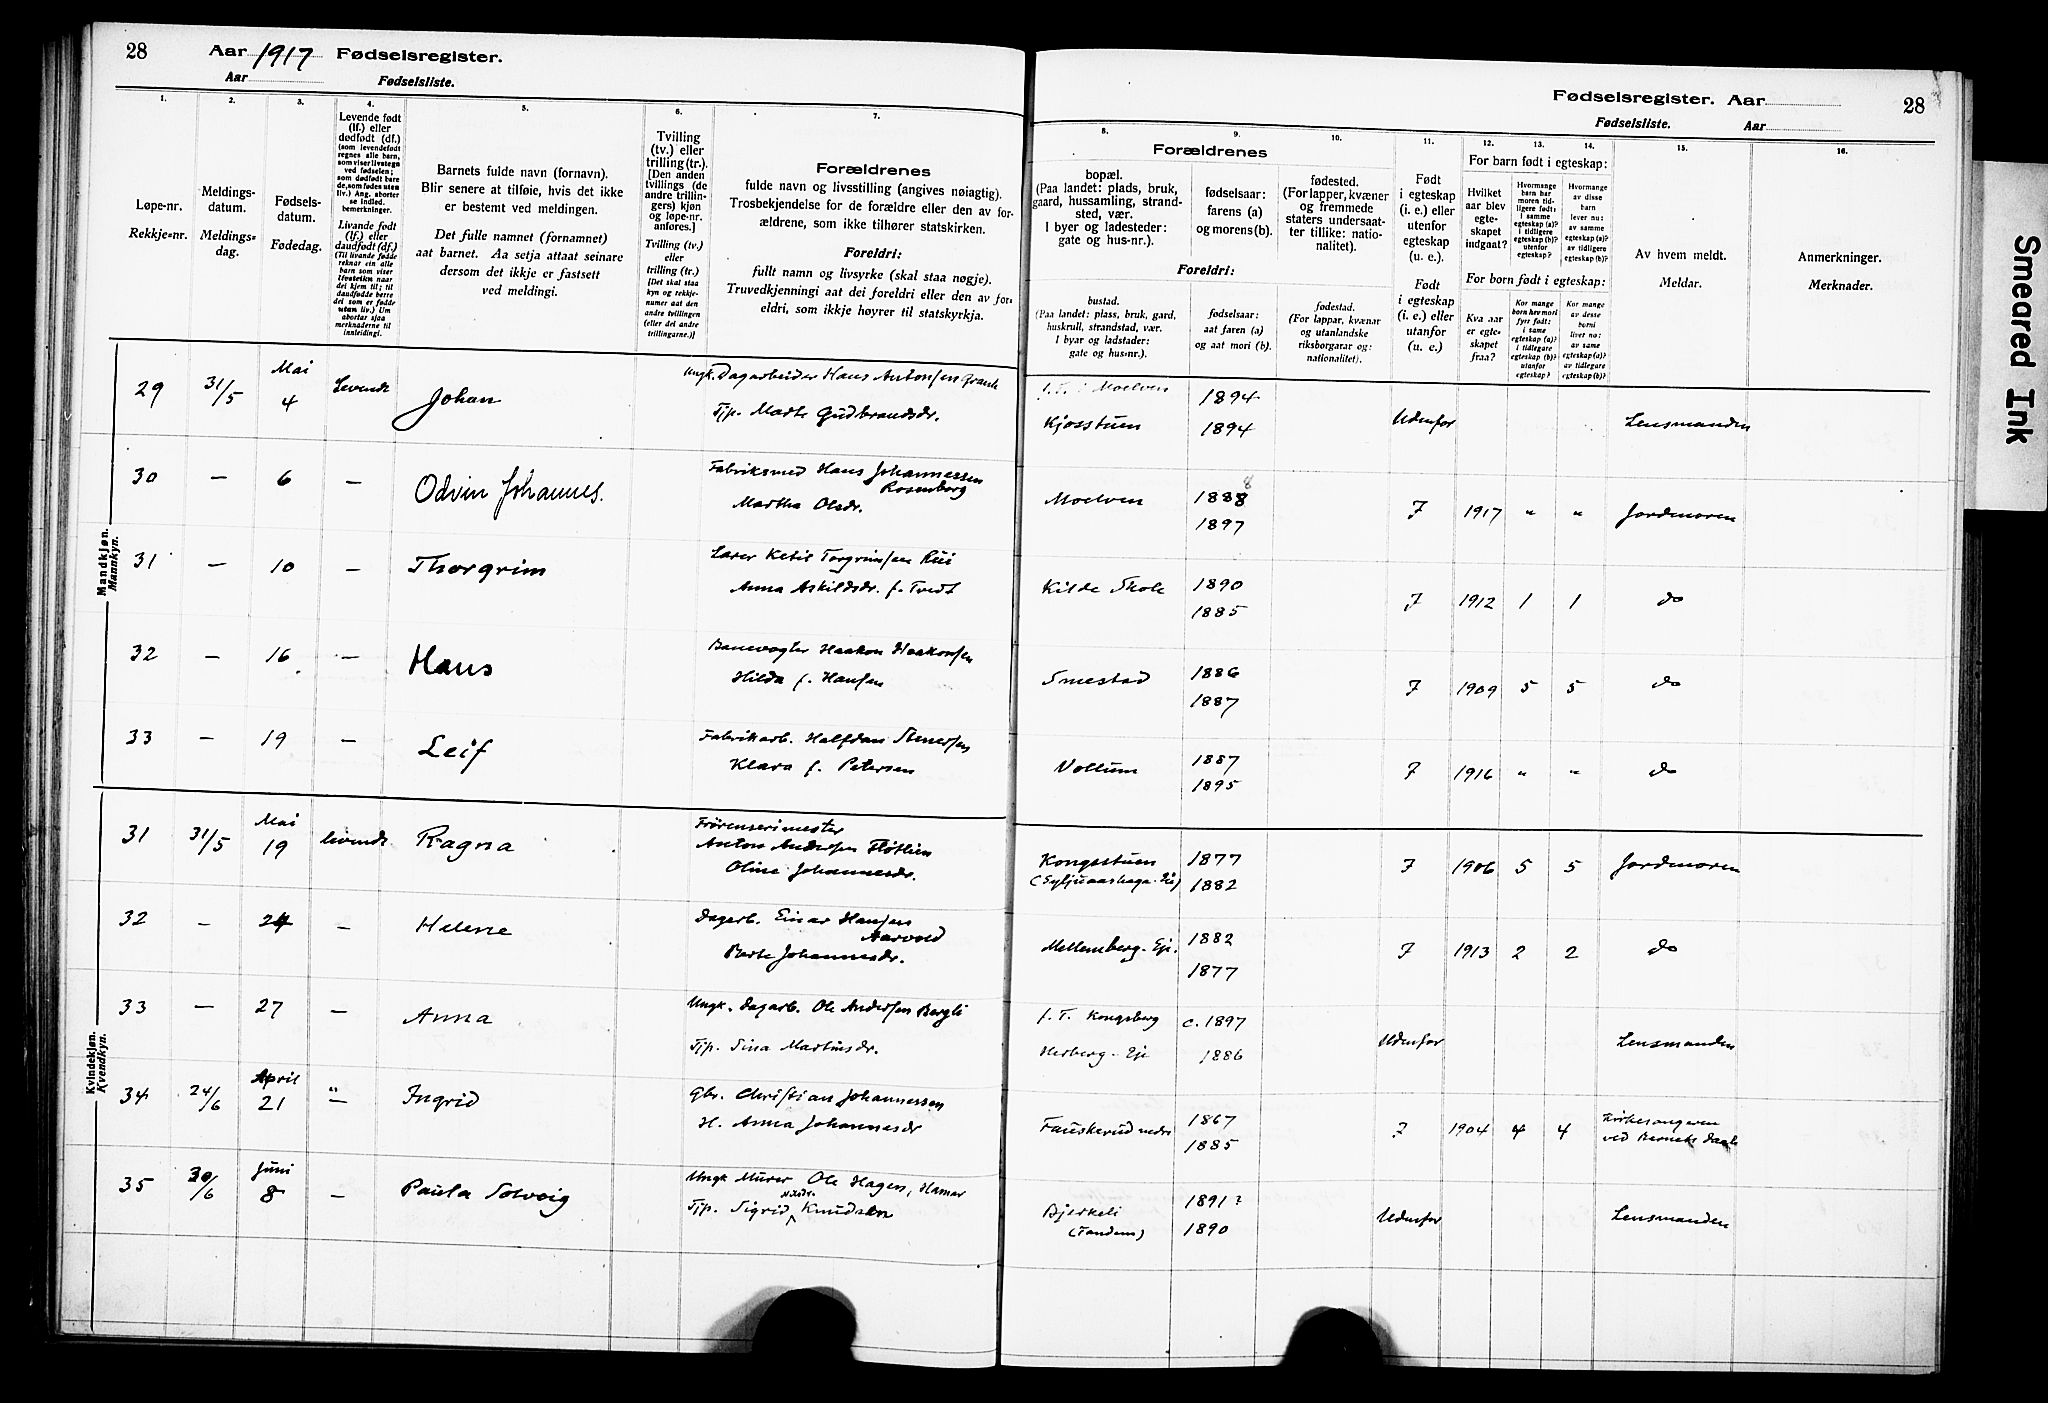 28 Aar 1917 Fødselsregister.
Aar Fødselsliste.
Fødselsregister. Aar 28
Fødselsliste. Aar
1. 2. 3. 4. 5. 6. 7.
Løpe-nr.
Rekkje-nr.
Meldings-
datum.
Meldings-
dag.
Fødsels-
datum.
Fødedag.
Levende født
(lf.) eller
dødfødt (df.)
(som levendefødt
regnes alle barn,
som viser livstegn
ved fødselen;
som dødfødt bare
de, som fødes uten
liv.) Ang. aborter
se indled.
bemerkninger.
Livande født
(lf.) eller
daudfødt (df.)
(Til livande fødde
reknar ein alle
barn som viser
livsteikn naar
dei kjem til; til
daudfødde berre
dei som er fødde
utan liv.) Um
abortar sjaa
merknaderne til
innleiding.
Barnets fulde navn (fornavn).
Blir senere at tilføie, hvis det ikke
er bestemt ved meldingen.
Det fulle namnet (fornamnet)
aat barnet. Aa setja attaat seinare
dersom det ikkje er fastsett
ved meldingi.
Tvilling
(tv.) eller
trilling (tr.).
[Den anden
tvillings (de
andre trillin-
gers) kjøn
og løpe-nr.
anføres.]
Tvilling (tv.)
eller
trilling (tr.)
[Det skal staa
kyn og rekkje-
numer aat den
andre tvillingen
(eller dei andre
trillingarne.)]
Forældrenes
fulde navn og livsstilling (angives nøiagtig).
Trosbekjendelse for de forældre eller den av for-
ældrene, som ikke tilhører statskirken.
Foreldri:
fullt namn og livsyrke (skal staa nøgje).
Truvedkjenningi aat dei foreldri eller den av for-
eldri, som ikkje høyrer til statskyrkja.
8. 9. 10. 11. 12. 13. 14. 15. 16.
Forældrenes
bopæl.
(Paa landet: plads, bruk,
gaard, hussamling, strand-
sted, vær.
I byer og ladesteder:
gate og hus-nr.).
Foreldri:
bustad.
(Paa landet: plass, bruk, gard,
huskrull, strandstad, vær.
I byar og ladstader:
gate og hus-nr.).
fødselsaar:
farens (a)
og morens (b).
fødselsaar:
aat faren (a)
og aat mori (b).
fødested.
(For lapper, kvæner
og fremmede
staters undersaat-
ter tillike: natio-
nalitet).
fødestad.
(For lappar, kvænar
og utanlandske
riksborgarar og:
nationalitet).
Født
i egteskap
(i. e.) eller
utenfor
egteskap
(u. e.).
Født
i egteskap
(i. e.) eller
utanfor
(u. e.).
For barn født i egteskap:
Hvilket
aar blev
egte-
skapet
indgaat?
Hvormange
barn har
moren tid-
ligere født:
i samme
egteskap (a)?
i tidligere
egteskap (b)?
utenfor
egteskap?
Hvormange
av disse
barn
lever nu:
av samme
egteskap (a)?
av tidligere
egteskap (b)?
For born født i egteskap:
Kva aar
er egte-
skapet
fraa?
Kor mange
born hev mori
fyrr født:
i same
egteskap (a)?
i tidlegare
egteskap (b)?
utanfor
egteskap?
Kor mange
av desse
borni
liver no:
av same
egteskap (a)?
av tidlegare
egteskap (b)?
Av hvem meldt.
Meldar.
Anmerkninger.
Merknader.
Mandkjøn.
Mannkyn.
29 31/5 Mai 4 Levende Johan
Ungk. Dagarbeider Hans Antonsen Granli
Tjp. Marte Gudbrandsdr.
f. T. i Moelven 1894
Kjosstuen 1894 Udenfor Lensmanden
30 — 6 — Odvin Johannes.
Fabriksmed Hans Johannessen
Rosenborg
Martha Olsdr.
Moelven 1888 8
1897 I 1917 " " Jordmoren
31 — 10 — Thorgrim
Lærer Ketil Torgrimsen Rui
Anna Askildsdr. f. Tvedt
Kilde Skole 1890
1885 I 1912 1 1 do
32 — 16 — Hans
Banevogter Haakon Haakonsen
Hilda f. Hansen
Smestad 1886
1887 I 1909 5 5 do
33 — 19 — Leif
Fabrikarb. Halfdan Stenersen
Klara f. Petersen
Vollum 1887
1895 I 1916 " " do
Kvindekjøn.
Kvendkyn.
31 31/5 Mai 19 levende Ragna
Frørenserimester
Anton Andersen Fløtlien
Oline Johannesdr.
Kongsstuen 1877
(Syljuaashaga-Eie) 1882 I 1906 5 5 Jordmoren
32 — 24 — Helene
Dagarb. Einar Hansen
Aarvold
Berte Johannesdr.
Mellemberg-Eje. 1882
1877 I 1913 2 2 do
33 — 27 — Anna
Ungk. Dagarb. Ole Andersen Bergli
Tjp. Sina Martinsdr.
f. T. Kongsberg c. 1897
Herberg-Eje 1886 Udenfor Lensmanden
34 24/6 April 21 " — Ingrid
Gbr. Christian Johannessen
H. Anna Johannesdr
Fauskerud nedre 1867
1885 I 1904 4 4 Kirkesangeren
ved Barnets daab
35 30/6 Juni 8 — Paula Solveig
Ungk Murer Ole Hagen, Hamar
Tjp. Sigrid Knudsen
Bjerkeli 1891?
(Tandem) 1890 Udenfor Lensmanden
Smeared Ink